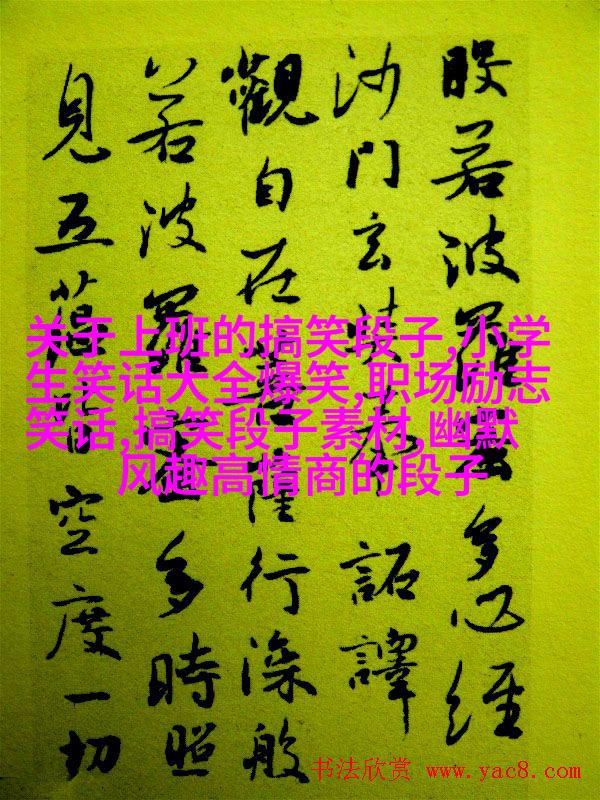 般若波羅蜜多心經
沙門玄奘奉 詔譯
觀自在菩薩行深般
若波羅蜜多時照
見五蘊皆空度一切
关于上班的搞笑段子,小学
生笑话大全爆笑,职场励志
笑话,搞笑段子素材,幽默
风趣高情商的段子
书法欣赏 www.yac8.com